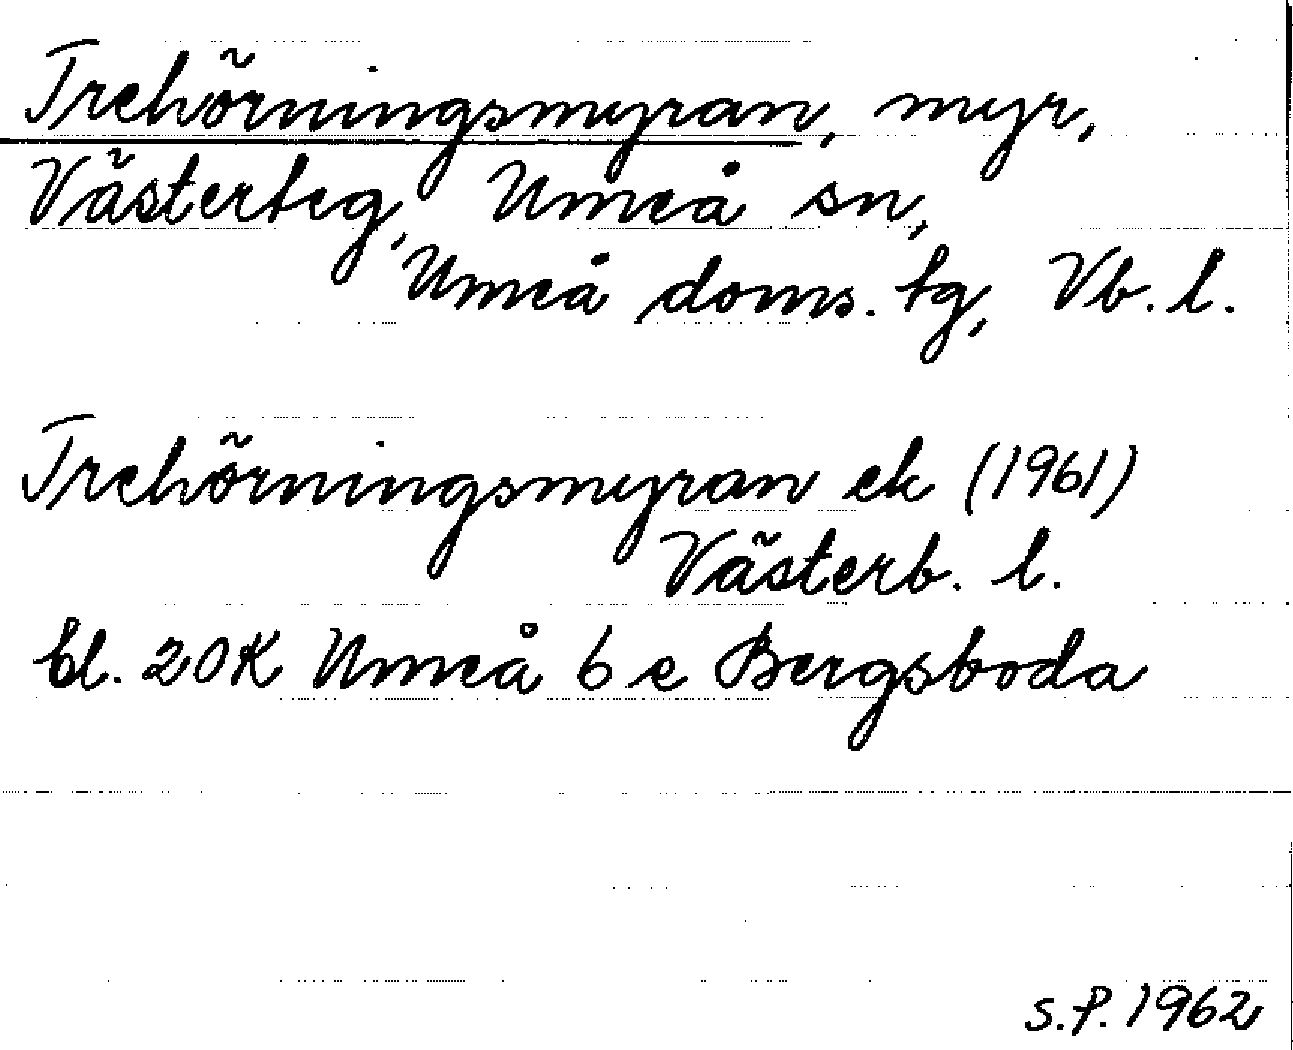 Trehörningsmyran, myr,
Västerteg, Umeå sn,
Umeå doms. tg, Vb. l.
Trehörningsmyran ek (1961)
Västerb. l.
bl. 20K Umeå 6 e Bergsboda
S.P. 1962